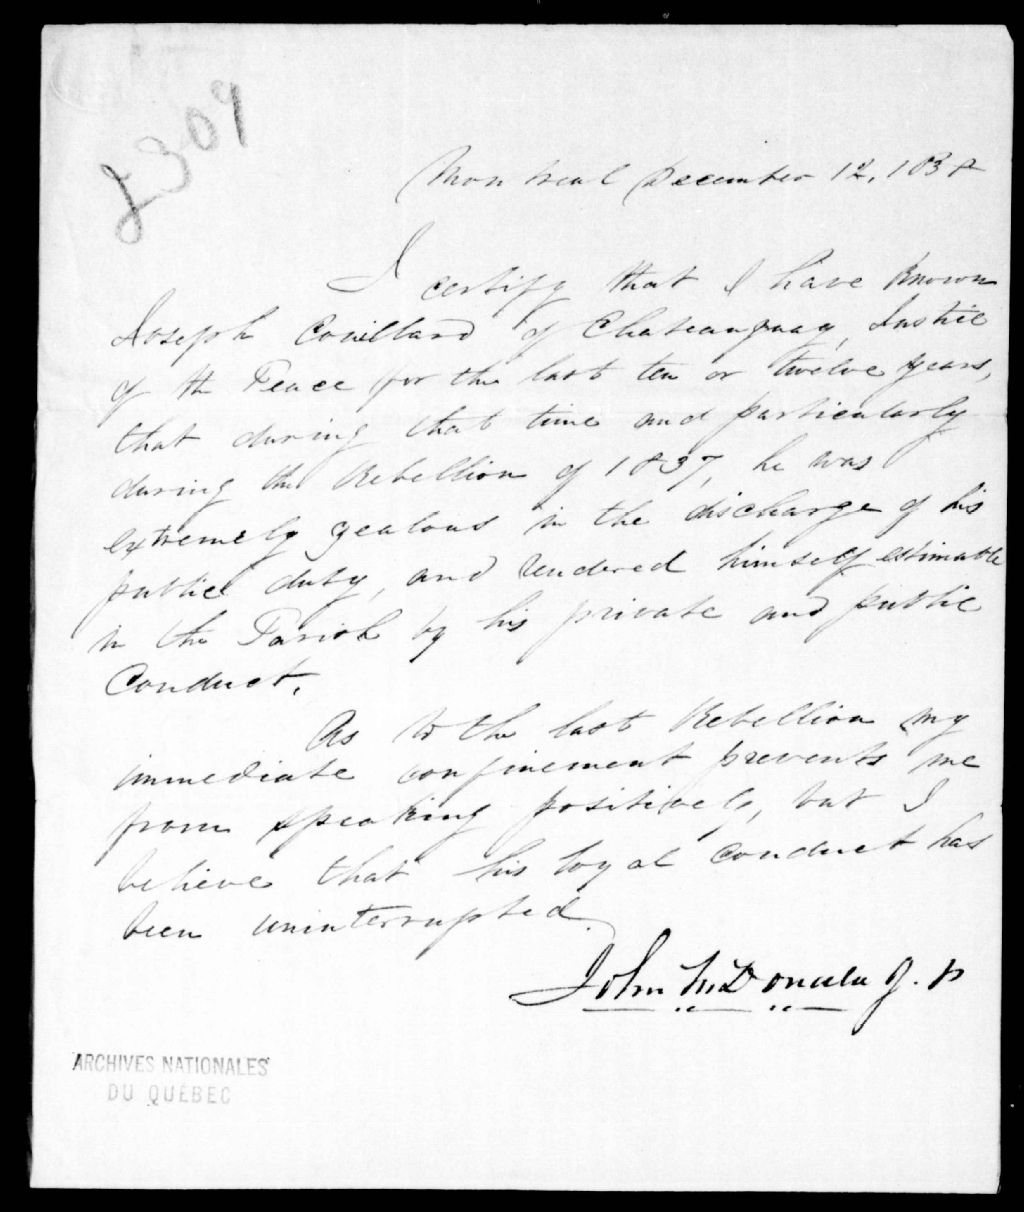 2309
Montreal December 12, 1838
I certify that I have known
Joseph Couillard of Chateauguay, Justice
of the Peace for the last ten or twelve years,
that during that time and particularly
during the Rebellion of 1837, he was
extremely zealous in the discharge of his
public duty, and rendered himself estimable
in the Parish by his private and public
Conduct.
As to the last Rebellion my
immediate confinement prevents me
from speaking positively, but I
believe that his loyal conduct has
been uninterrupted.
John McDonald J. P
ARCHIVES NATIONALES
DU QUÉBEC